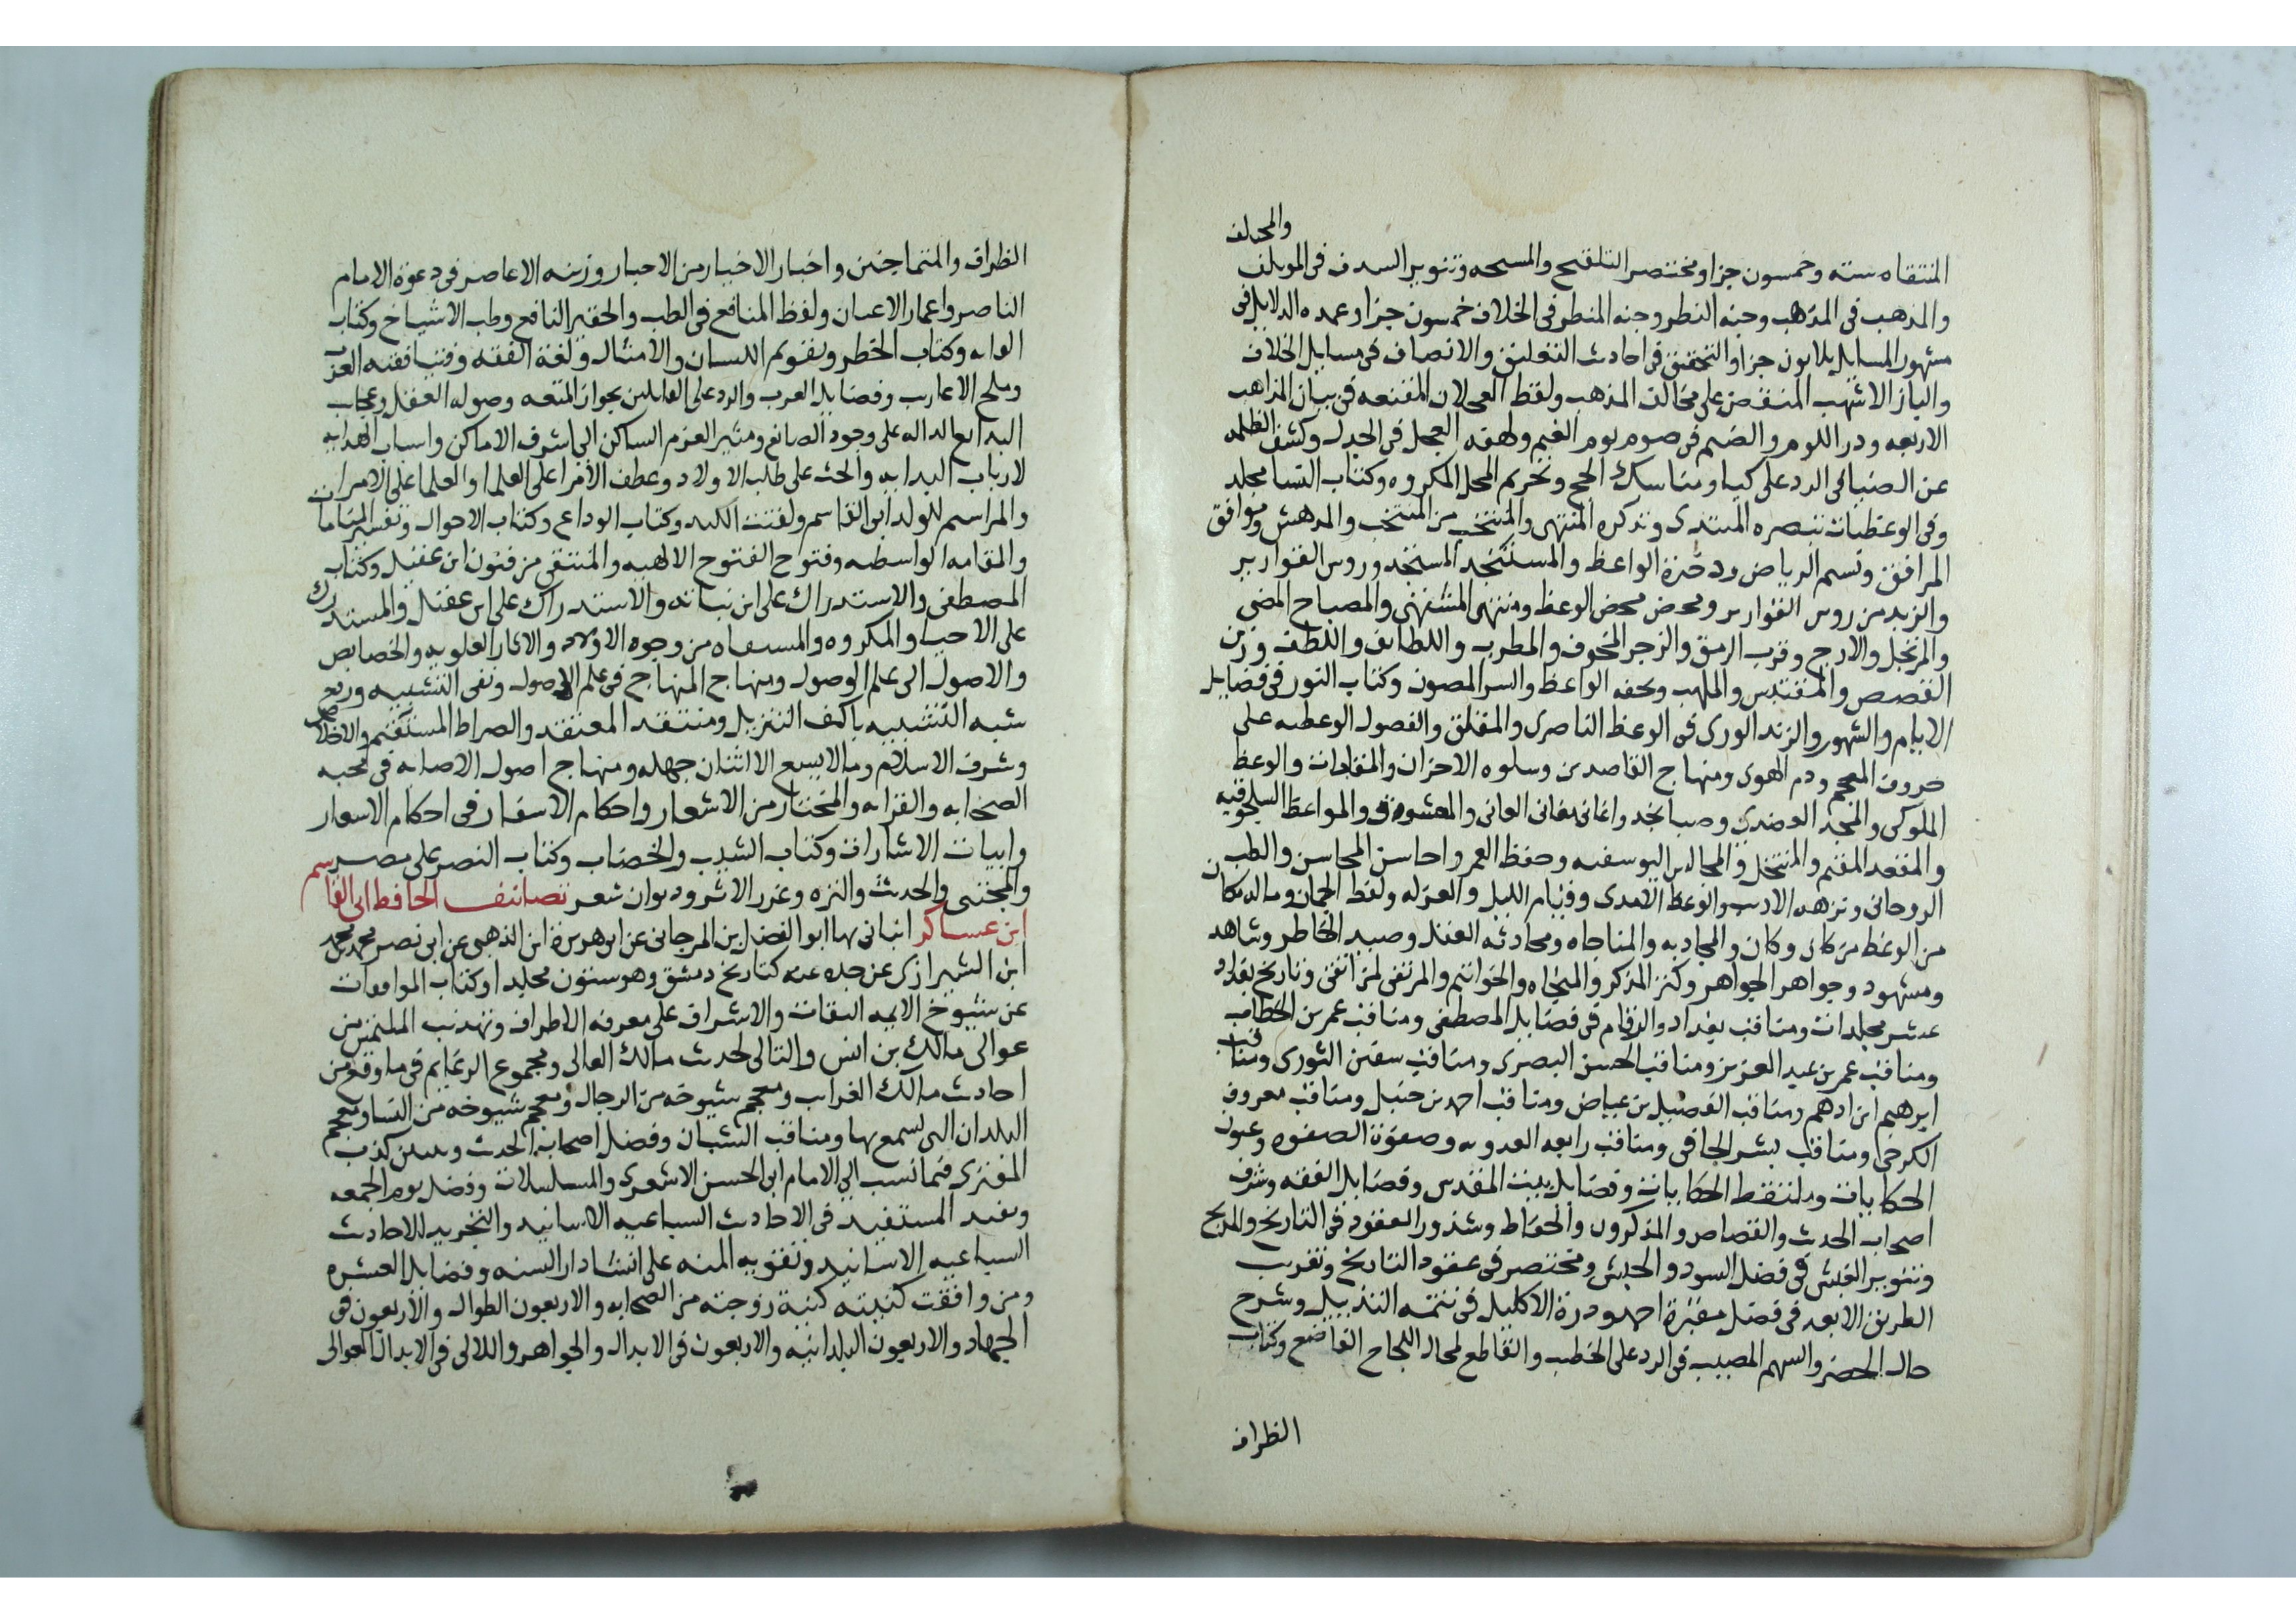 والمختلف
المنتقاه سته وخمسون جزا ومختصر التلقيح والمسحه وتنوير السدف فى الموتلف
والمذهب فى المذهب وجنه النظر وجنه المنظر فى الخلاف خمسون جزا وعمده الدلايل فى
مشهور المسايل ثلاثون جزا والتحقيق فى احاديث التعليق والانصاف فى مسايل الخلاف
والباز الاشهب المنقض على مخالف المذهب ولقط العجلان المقنعه فى بيان المذاهب
الاربعه ودر اللوم والضيم فى صوم يوم الغيم ولهفه العجل فى الجدل وكشف الظلمه
عن الضيا فى الرد على كيا ومناسك الحج وتحريم المحل المكروه وكتاب النسا مجلد
وفى الوعظيات تبصره المبتدى وتذكره المنتهى والمنتخب من المنتخب والمدهش وموافق
المرافق ونسيم الرياض ودخيرة الواعظ والمستنجد المستنجد وروس القوارير
والزبد من روس القوارير ومحض محض الوعظ ومنتهى المشتهى والمصباح المضى
والمرتجل والارج وقرب الرمق والزجر المخوف والمطرب واللطايف واللطف وزين
القصص والمقتبس والملهب وتحفه الواعظ والسر المصون وكتاب النور فى فضايل
الايام والشهور والزند الورى فى الوعظ الناصرى والمقلق والفصول الوعظيه على
حروف المعجم ودم الهوى ومنهاج القاصدين وسلوه الاحزان والمقامات والوعظ
الملوكى والمنجد العضدى وصبا نجد واغانى مغانى المعانى والمواعظ السلجوقيه
والمقعد المقيم والمنتخل والمجالس اليوسفيه وحفظ العمر واحاسن المحاسن والطب
الروحانى ونزهه الاديب والوعظ الامدى وقيام الليل والعزله ولقط الجمان وماله مكان
من الوعظ من كان وكان والمجاديه والمناجاه ومحادثه العقل وصيد الخاطر وشاهد
ومشهود وجواهر الجواهر وكنز المذكر والمنجاه والخواتيم والمرتقى لمن اتقى وتاريخ بغداد
عشر مجلدات ومناقب بغداد والوفا فى فضايل المصطفى ومناقب عمر بن الخطاب
ومناقب عمر بن عبد العزيز ومناقب الحسن البصرى ومناقب سفين الثورى ومناقب
ابرهيم ابن ادهم ومناقب الفضيل بن عياض ومناقب احمد بن حنبل ومناقب معروف
الكرخى ومناقب بشر الحافى ومناقب رابعه العدويه وصفوة الصفوه وعيون
الحكايات وملتقط الحكايات وفضايل بيت المقدس وفضايل الفقه وشرف
اصحاب الحديث والقصاص والمذكرون والحفاظ وشذور العقود فى التاريخ والمديح
وتنوير الغبش فى فضل السود والحبش ومختصر فى عقود التاريخ وتقريب
الطريق الابعد فى فضل مقبرة احمد ودرة الاكليل فى تتمه التذييل وشرح
حال الخضر والسهم المصيب فى الرد على الخطيب والقاطع لمحال اللجاج القاضع وكتاب
الظراف
الظراف والمتماجنين واخبار الاخيار من الاحبار وزينه الاعاصر فى دعوة الامام
الناصر واعمار الاعيان ولفظ المنافع فى الطب والحقير النافع وطب الاشياخ وكتاب
وكتاب الخطر وتقويم اللسان والامثال ولغة الفقه وفتيا فقيه العرب
وملح الاعاريب وفضايل العرب والرد على القايلين بجواز المتعه وصوله العقل وعجايب
البدايع الداله على وجود الصانع ومثير العزم الساكن الى اشرف الاماكن واسباب الهدايه
لارباب البدايه والحث على طلب الاولاد وعطف الامرا على العلما والعلما على الامرا
والمراسم للولد ابى القاسم ولفتت الكبد وكتاب الوداع وكتاب الاحوال وتفسير المنامات
والمقامه الواسطيه وفتوح الفتوح الالهيه والمنتقى من فنون ابن عقيل وكتاب
المصطفى والاستدراك على ابن نباته والاستدراك على ابن عقيل والمستدرك
على الاحيا والمكروه والمسفاه من وجوه الاولاد والاثار العلويه والخصايص
والاصول الى علم الوصول ومنهاج المنهاج فى علم الاصول ونفى التشبيه ودفع
شبه التشبيه باكف التنزيل ومنتقد المعتقد والصراط المستقيم والاخلاص
وشرف الاسلام وما لا يسع الانسان جهله ومنهاج اصول الاصابه فى محبه
الصحابه والقرابه والمختار من الاشعار واحكام الاسفار فى احكام الاسعار
وابيات الاشارات وكتاب الشيب والخضاب وكتاب النصر على مصر
والمجتنى والحديث والنزه وغرر الاثر وديوان شعر تصانيف الحافظ ابى القاسم
ابن عساكر انبانى بها ابو الفضل ابن المرجانى عن ابى هريرة ابن الذهبى عن ابى نصر محمد بن محمد
ابن الشيرازى عن جده عنه كتاريخ دمشق وهو ستون مجلدا وكتاب الموافقات
عن شيوخ الايمه الثقات والاشراف على معرفه الاطراف وتهذيب الملتمس من
عوالى مالك بن انس والتالى لحديث مالك العالى ومجموع الرغايب فى ما وقع من
احاديث مالك الغرايب ومعجم شيوخه من الرجال ومعجم شيوخه من النسا ومعجم
البلدان التى سمع بها ومناقب الشبان وفضل اصحاب الحديث وتبيين كذب
المفترى فيما نسب الى الامام ابى الحسن الاشعرى والمسلسلات وفضل يوم الجمعه
ومفيد المستفيد فى الاحاديث السباعيه الاسانيد والتجريد للاحاديث
السباعيه الاسانيد وتقويه المنه على انشا دار السنه وفضايل العشره
ومن وافقت كنيته كنية زوجته من الصحابه والاربعون الطوال والاربعون فى
الجهاد والاربعون البلدانيه والاربعون فى الابدال والجواهر واللالى فى الابدال العوالى